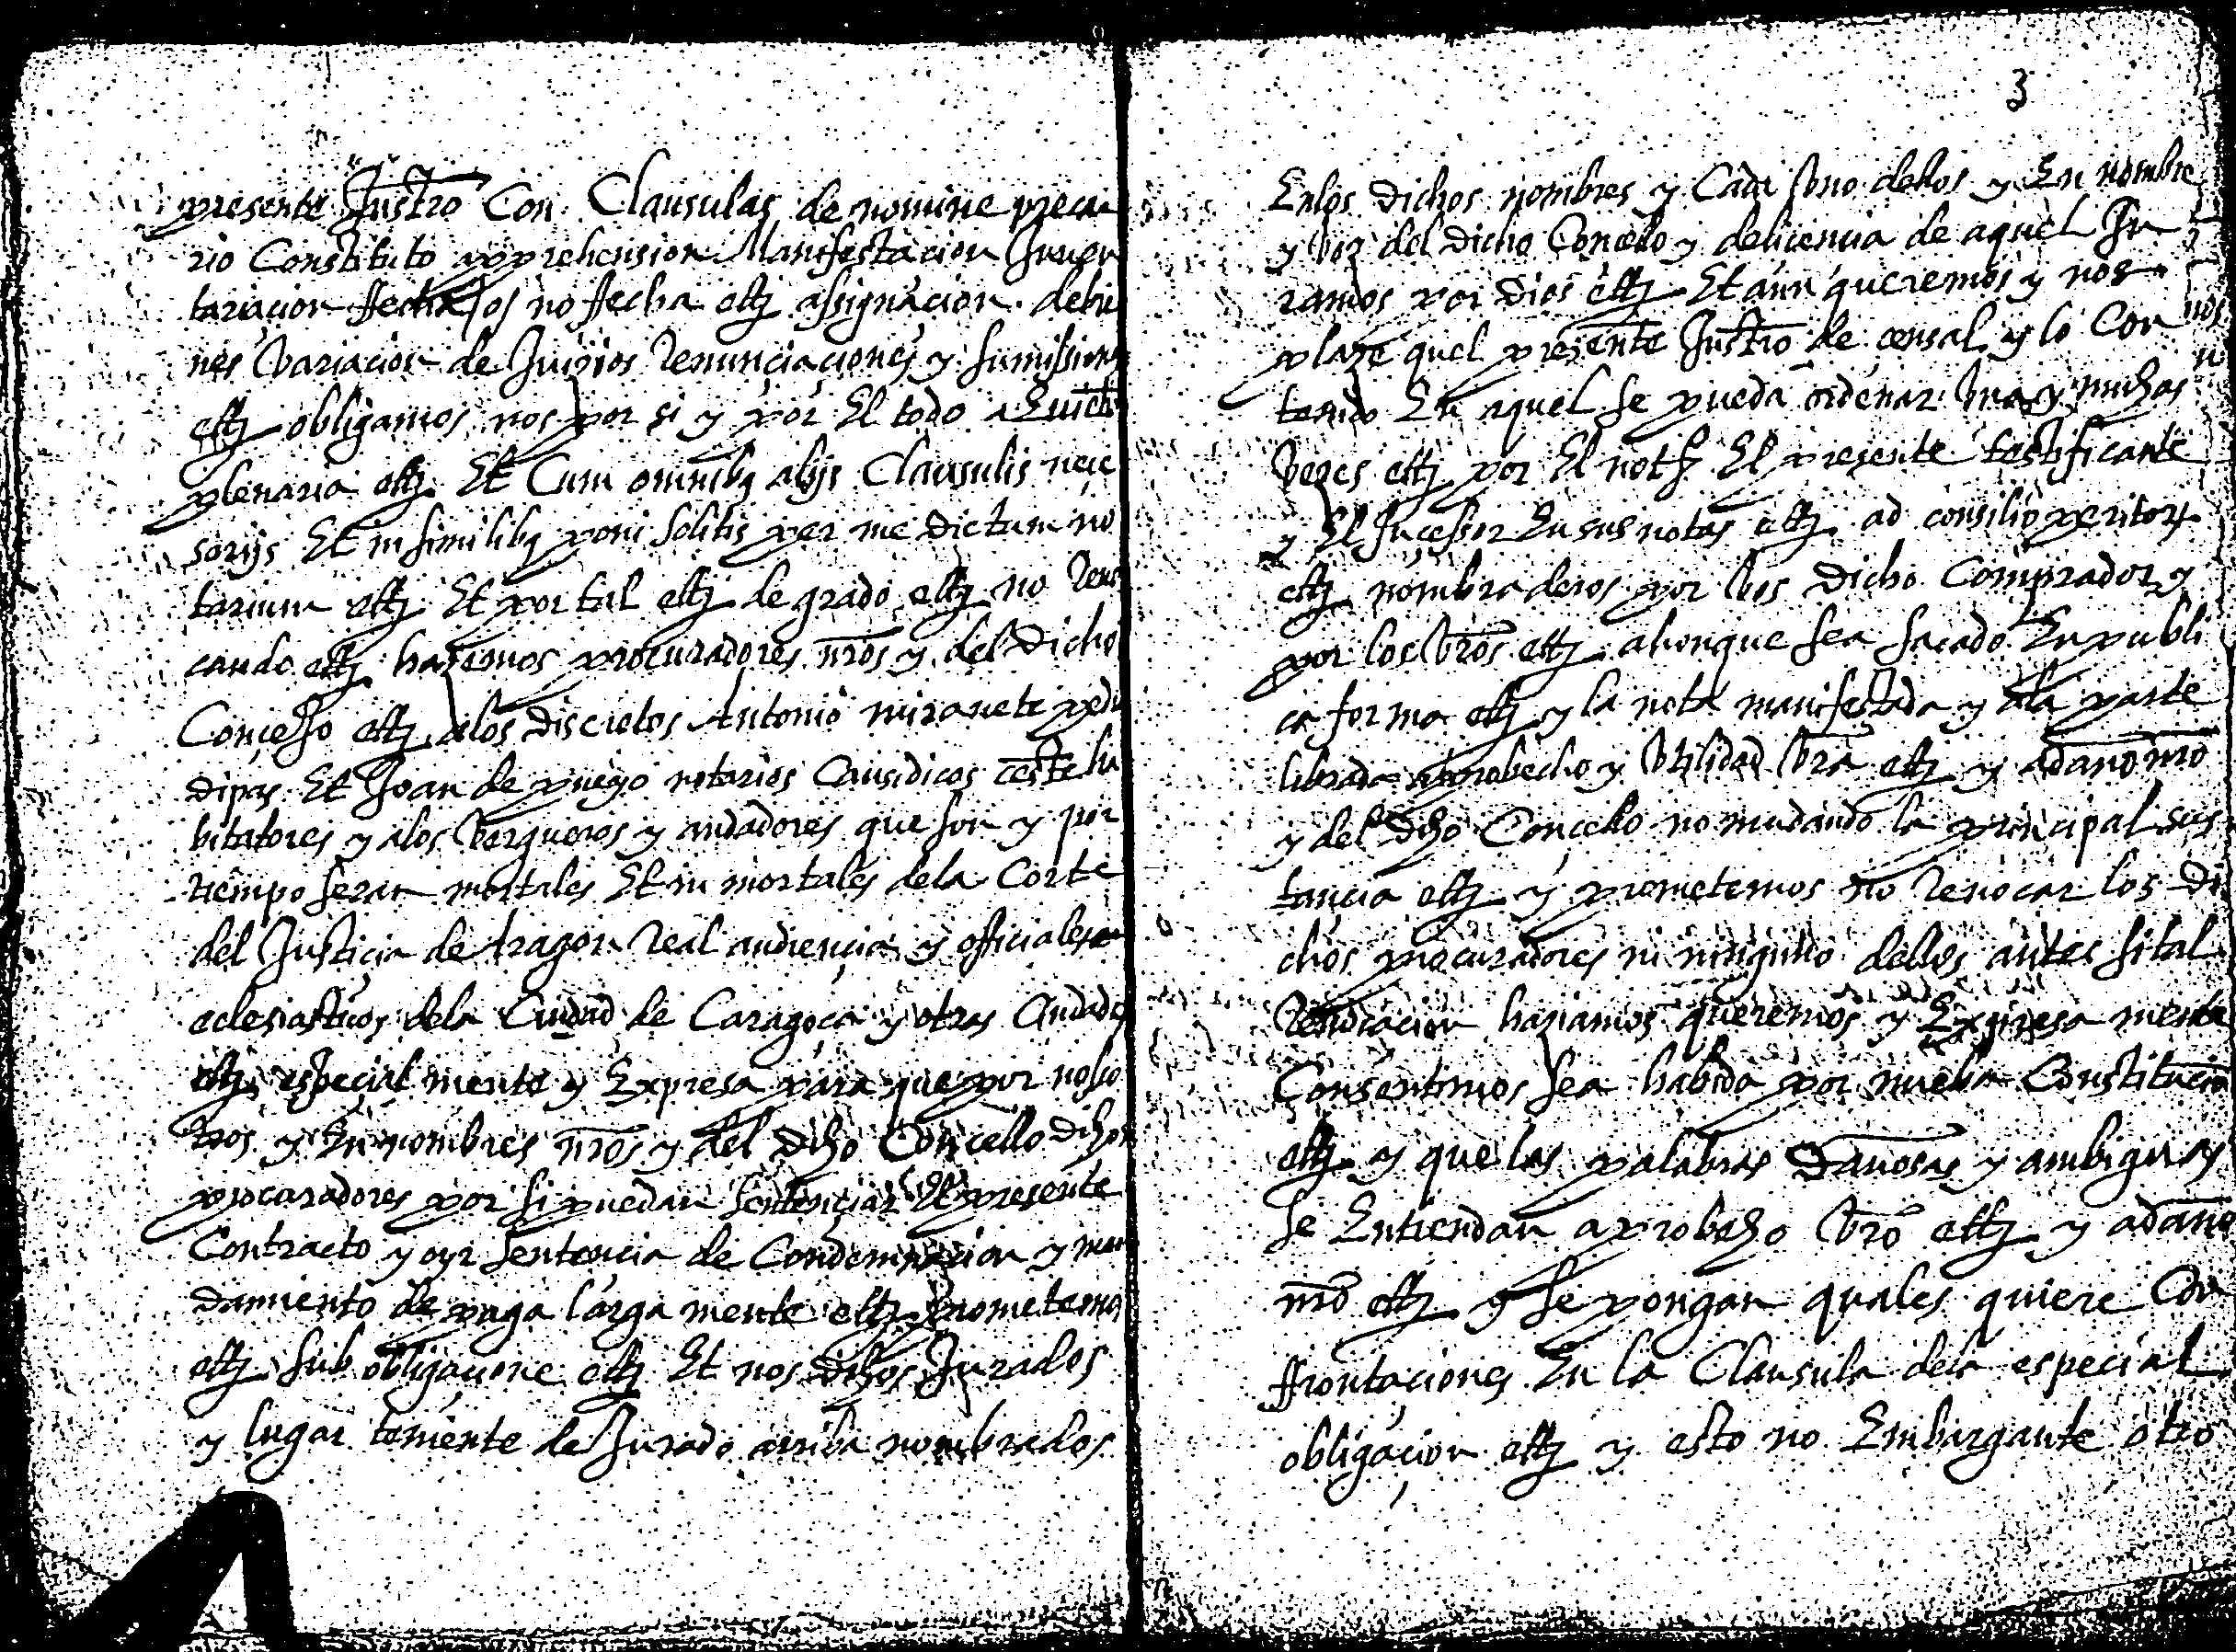 presente Instro Con Clausulas de nomine preca
rio Constituto apprehension Manifestacion Inuen
tariacion ffecha os no ffecha ettz assignacion de bie
nes Variacion de Juiçios Renunçiaçiones y sumissiones
ettz obligamos nos por si y por El todo a Euicti
plenaria ettz Et Cum omnibq alijs Clausulis neçe
sarijs Et in similibq poni solitis per me dictum no
tarium ettz Et por tal ettz de grado ettz no Reuo
cando ettz hazemos procuradores nros y del dicho
Conçello ettz alos discretos Antonio mirauete pedro
dipas Et Joan de pueyo notarios Causidicos ceste ha
bitatores y alos Vergueros y andadores que son y por
tiempo seran mortales Et in mortales dela Corte
del Justicia de Aragon Real audiencia y officiales
eclesiasticos dela Ciudad de Caragoça y otras Ciudades
ettz especial mente y Expresa para que por noso
tros y En nombres nros y del dho Concello dihos
procuradores por si puedan sentençiar El presente
Contracto y oyr sentencia de Condemnacion y man
damiento de paga larga mente ettz prometemos
ettz sub obligaçione ettz Et nos dihos Jurados
y lugar teniente de Jurado arriba nombrados
3
Enlos dichos nombres y Cada vno dellos y En nombre
y Voz del dicho Concello y de licencia de aquel Ju
ramos por dios ettz Et aun queremos y nos
plaze quel presente Instro de censal y lo Con
tenido En aquel se pueda ordenar Vna y muchas
Vezes ettz por El not El presente testificante
y El suçessor En sus notas ettz ad consilio peritorz
ettz nombraderos por Vos dicho Comprador y
por los Vros ettz ahonque sea sacado En publi
ca forma ettz y la nota manifestada y ala parte
librada a probecho y Vtilidad Vra ettz y adano nro
y del dho Concello no mudando la principal sus
tancia ettz y prometemos no Reuocar los di
chos procuradores ni ninguno dellos antes si tal
Reuocacion haziamos queremos y Expresa mente
Consentimos sea habida por nueba Constitucion
ettz y que las palabras Danosas y ambiguas
se Entiendan aprobecho Vro ettz y adano
nro ettz y se pongan quales quiere Con
ffrontaciones En la Clausula dela especial
obligacion ettz y esto no Embargante otro